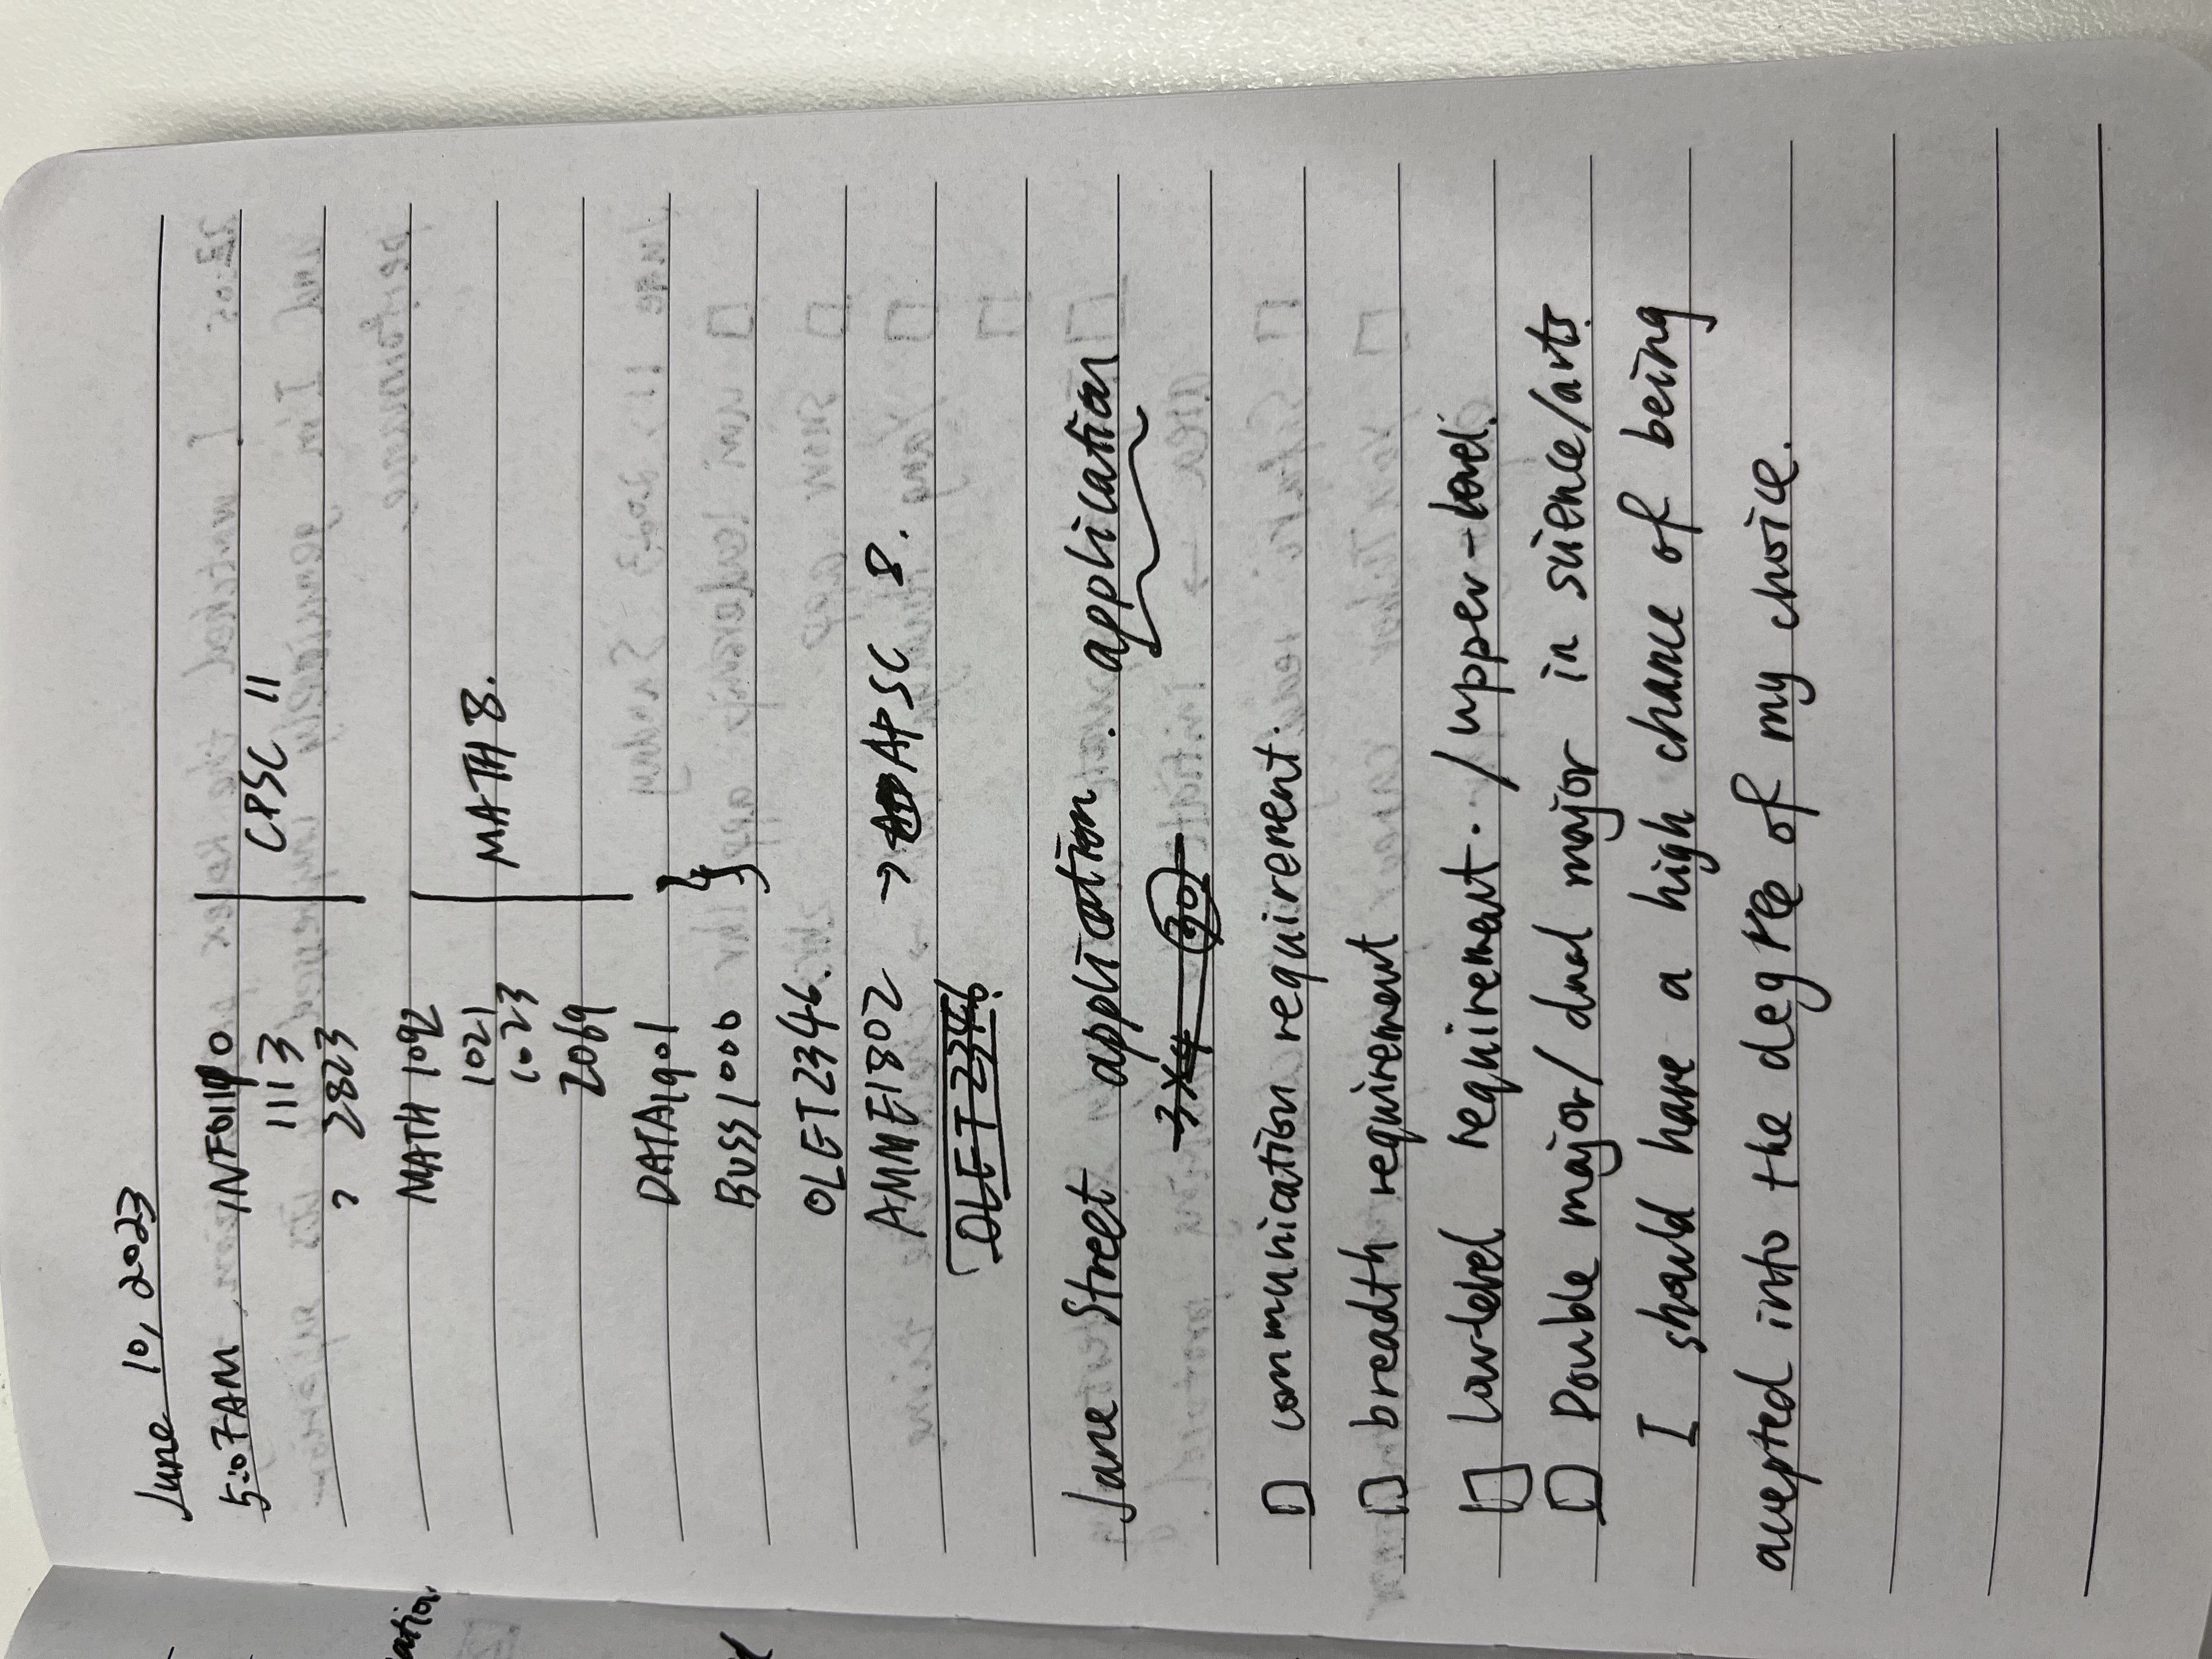 June 10, 2023
5:07AM INFO1110
1113 CPSC 11
? 2823
MATH 1092
1021 MATH 8.
1023
2069
DATA1901
BUSS1000
OLET2346.
AMME1802 → APSC 8.
OLET2346
Jane Street application. application
3×4 30
□ communication requirement.
□ breadth requirement
□ low-level requirement. / upper-level.
□ Double major/dual major in science/arts.
I should have a high chance of being
accepted into the degree of my choice.